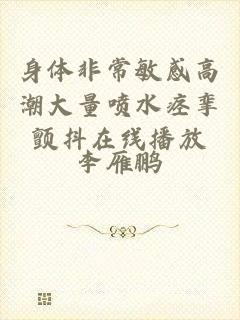 身体非常敏感高
潮大量喷水痉挛
颤抖在线播放
李雁鹏